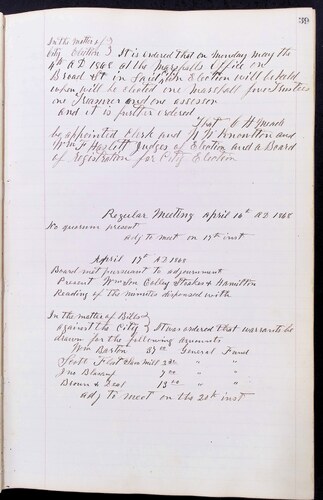 39
In the matter of
City Election } It is ordered that on Monday May the
4th A.D. 1868 at the Marshalls Office on
Broad St in said city an Election will be held
when will be elected one Marshall five trustees
one Treasurer and one assessor
and it is further ordered
That C H Mead
be appointed Clerk and W W Knowlton and
Wm F Haslett Judges of Election and a Board
of Registration for City Election
Regular Meeting April 10th A.D. 1868
No quorum present
adj to meet on 17th inst
April 17th A.D. 1868
Board met pursuant to adjournment
Present & Hamilton
Reading of the minutes dispensed with
In the matter of Bills
against the City } It was ordered that warrants be
drawn for the following amounts
Wm Barton General Fund
Scott Flat Claw Mill " "
Jno 7 00 " "
Brown & 13 00 " "
adj to meet on the 20th inst